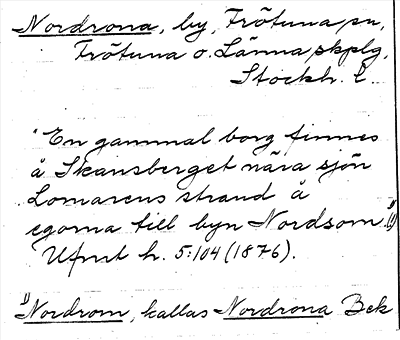 Nordrona, by, Frötuna sn,
Frötuna o. Länna skplg,
Stockh. l.
"En gammal borg finnes
å Skansberget nära sjön
Lomarens strand å
egorna till byn Nordsom."1)
Ufmt h. 5:104 (1876).
1) Nordrom, kallas Nordrona Bek